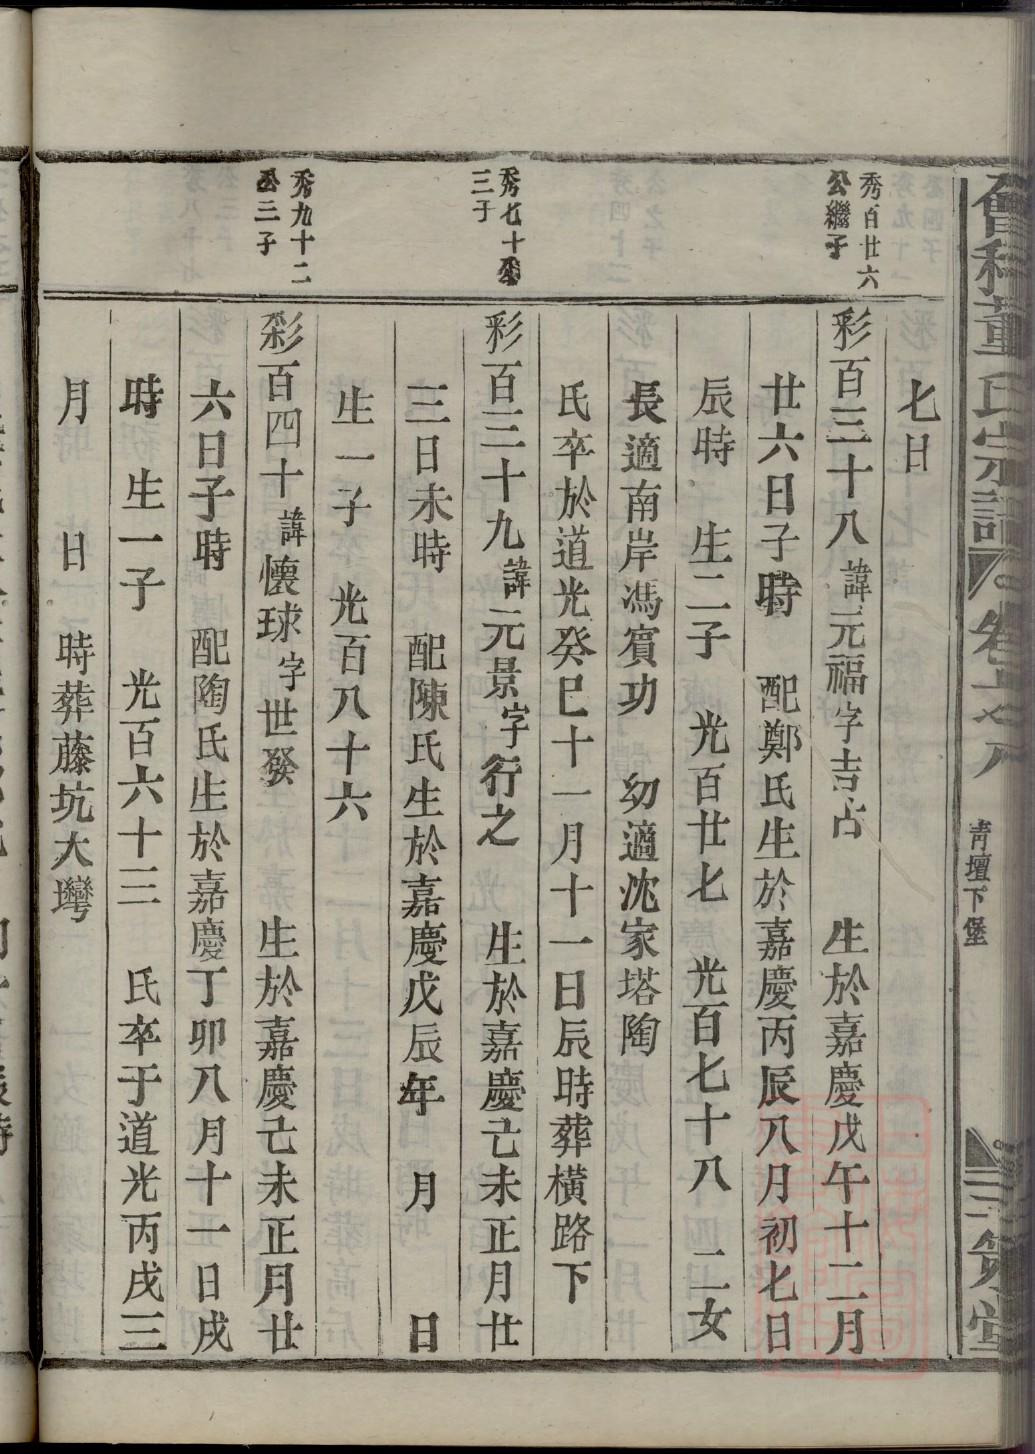 會稽董氏宗譜
卷
青壇下堡
三策堂
七日
秀百廿六
公繼子
彩百三十八諱元福字吉占 生於嘉慶戊午十二月
廿六日子時 配鄭氏生於嘉慶丙辰八月初七日
辰時 生二子 光百廿七 光百七十八 二女
長適南岸馮賓功 幼適沈家塔陶
氏卒於道光癸巳十一月十一日辰時葬橫路下
秀七十公
三子
彩百三十九諱元景字行之 生於嘉慶己未正月廿
三日未時 配陳氏生於嘉慶戊辰年 月 日
生一子 光百八十六
秀九十二
公三子
彩百四十諱懷球字世發 生於嘉慶己未正月廿
六日子時 配陶氏生於嘉慶丁卯八月十一日戌
時 生一子 光百六十三 氏卒于道光丙戌三
月 日 時葬藤坑大灣